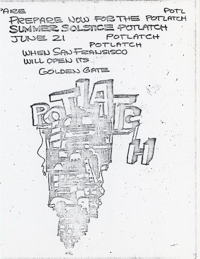 PARE POTL
PREPARE NOW FOR THE POTLATCH
SUMMER SOLSTICE POTLATCH
JUNE 21 POTLATCH
POTLATCH
WHEN SAN FRANSISCO
WILL OPEN ITS
GOLDEN GATE
POTLATCH